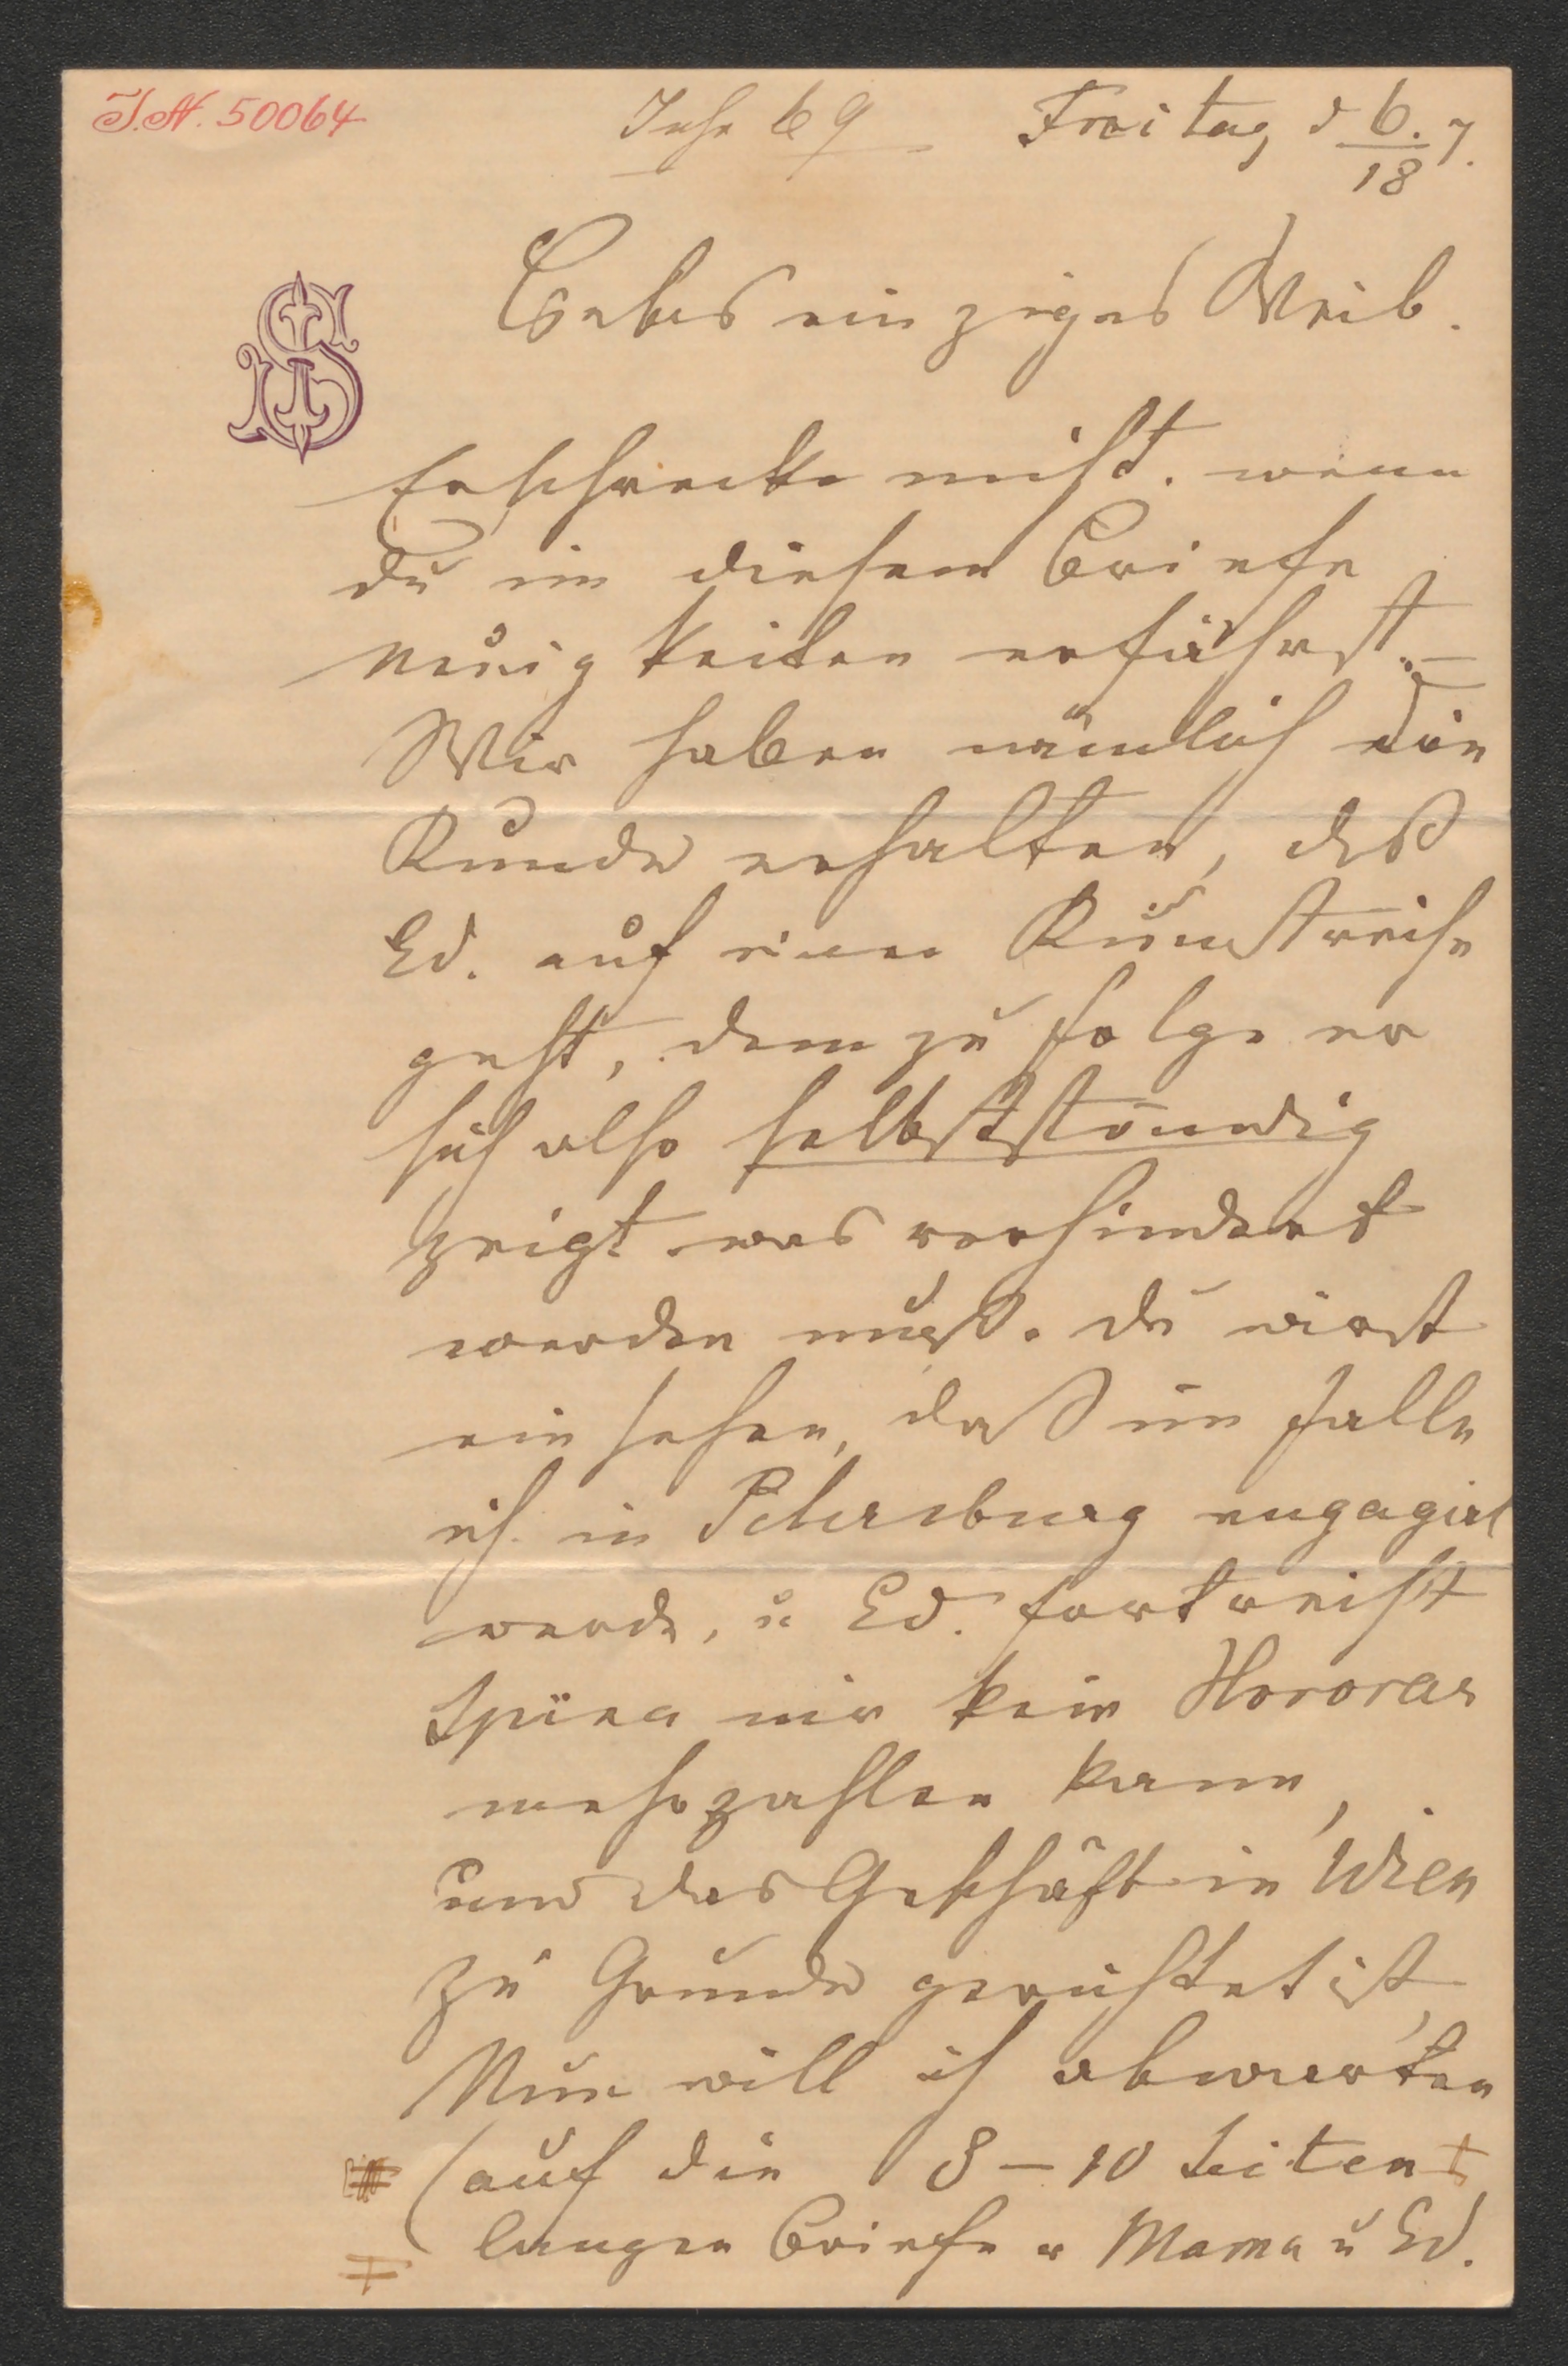 I.N. 50064
Jahr 69 Freitag d 6. 7.
18
JS
Liebes einziges Weib.
Erschrecke nicht. wenn
du in diesem Briefe
Neuigkeiten erfährst. –
Wir haben nämlich die
Kunde erhalten, daß
Ed. auf einen Kunstreise
geht, demzufolge er
sich also selbstständig
zeigt was verhindert
werden muß. du wirst
einsehen, daß im Falle
ich in Petersburg engagirt
werde, u Ed. fortreist
Spina mir kein Honorar
mehr zahlen kann,
und das Geschäft in Wien
zu Grunde gerichtet ist,
Nun will ich abwarten
(auf die 8 – 10 Seiten
langen Briefe v Mama u Ed.